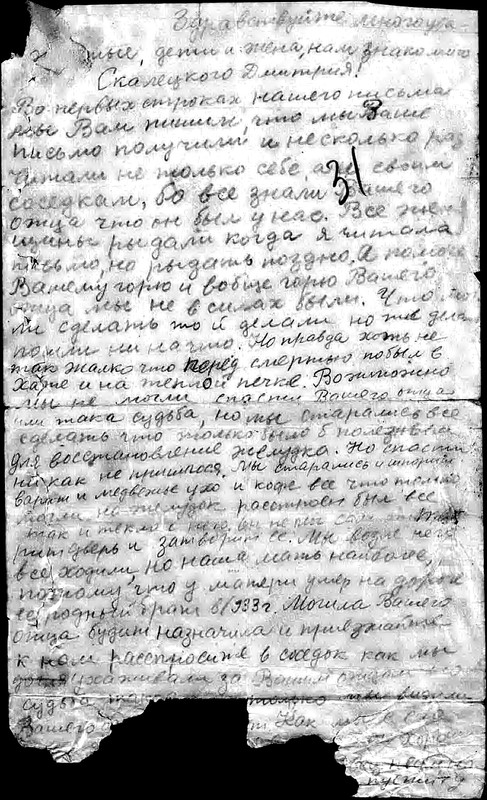 Здравствуйте многоува-
мые, дети и жена, нам знакомого
Скалецкого Дмитрия!
Во первых строках нашего письма
мы Вам пишим, что мы Ваше
письмо получили и несколько раз
читали не только себе, а и своим
соседкам, бо все знали Вашего
31
отца что он был у нас. Все жен
щины рыдали когда я читала
письмо, но рыдать поздно. А помочь
Вашему горю и вобще горю Вашего
отца мы не в силах были. Что мог
ли сделать то и делали, но
пошли ни на что. Но правда хоть не
так жалко что перед смертью побыл в
хате и на теплой печке. Возможно
мы не могли спасти Вашего отца
или така судьба, но мы старались все
сделать что только было б полезным
для восстановление желудка. Но спасти
ни как не пришлося. Мы старались и
варили и медвежье ухо и кофе все что только
могли но желудок расстроен был все
так и текло с него, он не мог сам
дверь и затворить ее. Мы возле него
все ходили, но наша мать наиболее,
потому, что у матери умер на дороге
родный брат в 1933 г. Могила Вашего
отца будит назначина и приезжайте
к нам расспросите в соседок как мы
ухаживали за Вашим отцом
судьба только мы
Вашего Как мы